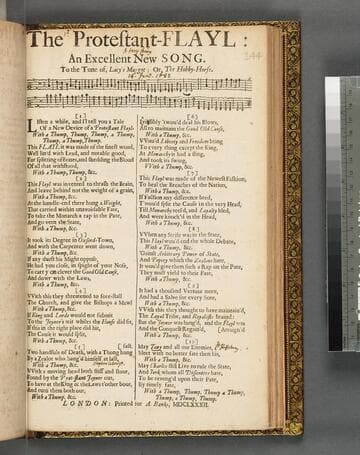 The Protestant-FLAYL:
An Excellent New SONG.
To the Tune of, Lacy's Maggot: Or, The Hobby-Horse.
144
[1]
Listen a while, and I'l tell you a Tale
Of a New Device of a Protestant Flayl
With a Thump, Thump, Thump, a Thump,
Thump, a Thump, Thump.
This FLAYL it was made of the finest wood,
Well lin'd with Lead, and notable good,
For splitting of Bones, and shedding the Blood
Of all that withstood,
With a Thump, Thump, &c.
[2]
This Flayl was invented to thrash the Brain,
And leave behind not the weight of a grain,
With a Thump, &c.
At the handle-end there hung a Weight,
That carried within unavoidable Fate,
To take the Monarch a rap in the Pate,
And govern the State,
With a Thump, &c.
[3]
It took its Degree in Oxford-Town,
And with the Carpenter went down,
With a Thump, &c.
If any durst his Might oppose,
He had you close, in spight of your Nose,
To carry on clever the Good Old Cause,
And down with the Laws,
With a Thump, &c.
[4]
With this they threatned to fore-stall
The Church, and give the Bishops a Mawl
With a Thump, &c.
If King and Lords would not submit
To the Joyner's
If this in the right place did hit,
The Cause it would split,
With a Thump, &c.
[5]
Two handfuls of Death, with a Thong hung fast,
By a Zealot who hang'd himself at last,
With a Thump, &c.
With a moving head both stiff and stout,
Found by the Protestant Joyner out,
To have at the King & the Laws t'other bout,
And turn them both out,
With a Thump, &c.
[6]
Invisibly 'twou'd deal his Blows,
All to maintain the Good Old Cause,
With a Thump, &c.
'Twou'd Liberty and Freedom bring
To every thing except the King,
At Monarchy it had a fling,
And took its swing,
With a Thump, &c.
[7]
This Flayl was made of the Newest Fashion,
To heal the Breaches of the Nation,
With a Thump, &c.
If Faction any difference bred,
'T would split the Cause in the very Head,
Till Monarchy reel'd, and Loyalty bled,
And were knock'd in the Head,
With a Thump, &c.
[8]
When any Strife was in the State,
This Flayl wou'd end the whole Debate,
With a Thump, &c.
'Gainst Arbitrary Power of State,
And Popery which the Zealous hate,
It would give them such a Rap on the Pate,
They must yield to their Fate,
With a Thump, &c.
[9]
It had a thousand Vertues more,
And had a Salve for every Sore,
With a Thump, &c.
With this they thought to have maintain'd
The Loyal Tribe, and Royalists brain'd:
But the Joyner was hang'd, and the Flayl was
And the Conquest Regain'd, [Arraign'd
With a Thump, &c.
[10]
May Tony and all our Enemies,
Meet with no better fate then his,
With a Thump, &c.
May Charles still Live to rule the State,
And York whom all Dissenters hate,
To be reveng'd upon their Pate,
By timely fate,
With a Thump, Thump, Thump a Thump,
Thump, a Thump, Thump.
LONDON: Printed for A. Banks, MDCLXXXII.